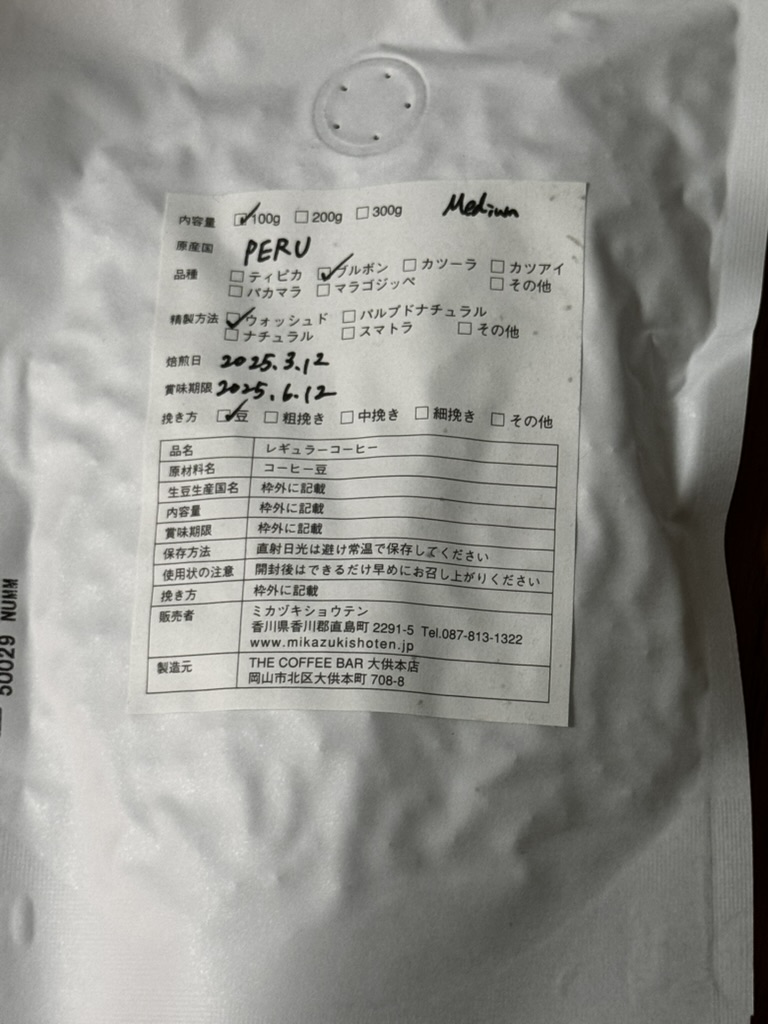 内容量 ☑100g ☐200g ☐300g Medium
原産国 PERU
品種 ☐ティピカ ☑ブルボン ☐カツーラ ☐カツアイ
☐パカマラ ☐マラゴジッペ ☐その他
精製方法 ☑ウォッシュド ☐パルプドナチュラル
☐ナチュラル ☐スマトラ ☐その他
焙煎日 2025.3.12
賞味期限 2025.6.12
挽き方 ☑豆 ☐粗挽き ☐中挽き ☐細挽き ☐その他
品名 レギュラーコーヒー
原材料名 コーヒー豆
生豆生産国名 枠外に記載
内容量 枠外に記載
賞味期限 枠外に記載
保存方法 直射日光は避け常温で保存してください
使用状の注意 開封後はできるだけ早めにお召し上がりください
挽き方 枠外に記載
販売者 ミカヅキショウテン
香川県香川郡直島町 2291-5 Tel.087-813-1322
www.mikazukishoten.jp
製造元 THE COFFEE BAR 大供本店
岡山市北区大供本町 708-8
50029 NUMM